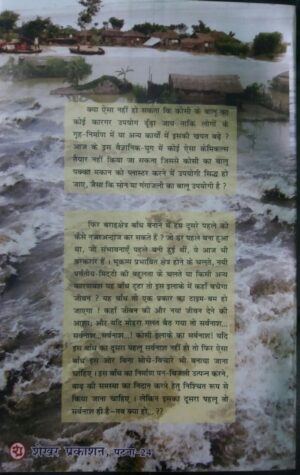 क्या ऐसा नहीं हो सकता कि कोसी के बालू का
कोई कारगर उपयोग ढूँढा जाय ताकि लोगों के
गृह-निर्माण में या अन्य कार्यों में इसकी खपत बढ़े ?
आज के इस वैज्ञानिक-युग में कोई ऐसा केमिकल्स
तैयार नहीं किया जा सकता जिससे कोसी का बालू
पक्का मकान को प्लास्टर करने में उपयोगी सिद्ध हो
जाए, जैसा कि सोन या गंगाजली का बालू उपयोगी है ?
फिर बराहक्षेत्र बाँध बनाने में हम दूसरे पहलू को
कैसे नजरअन्दाज कर सकते हैं ? जो डर पहले बना हुआ
था, जो संभावनाएँ पहले बनी हुई थीं, वे आज भी
बरकरार हैं । भूकम्प प्रभावित क्षेत्र होने के चलते, नयी
पर्वतीय मिट्टी की बहुलता के चलते या किसी अन्य
कारणवश यह बाँध टूटा तो इस इलाके में कहाँ बचेगा
जीवन ? यह बाँध तो एक प्रकार का टाइम-बम हो
जाएगा ! कहाँ जीवन की और नया जीवन देने की
आशा; और यदि मोहरा गलत बैठ गया तो सर्वनाश...
सर्वनाश...सर्वनाश...! कोसी इलाके का सर्वनाश! यदि
इस बाँध का दूसरा पहलू सर्वनाश नहीं हो तो फिर ऐसा
बाँध इस ओर बिना सोचे-विचारे भी बनाया जाना
चाहिए । इस बाँध का निर्माण पन-बिजली उत्पन्न करने,
बाढ़ की समस्या का निदान करने हेतु निश्चित रूप से
किया जाना चाहिए । लेकिन इसका दूसरा पहलू तो
सर्वनाश ही है–तब क्या हो...??
शेखर प्रकाशन, पटना-24